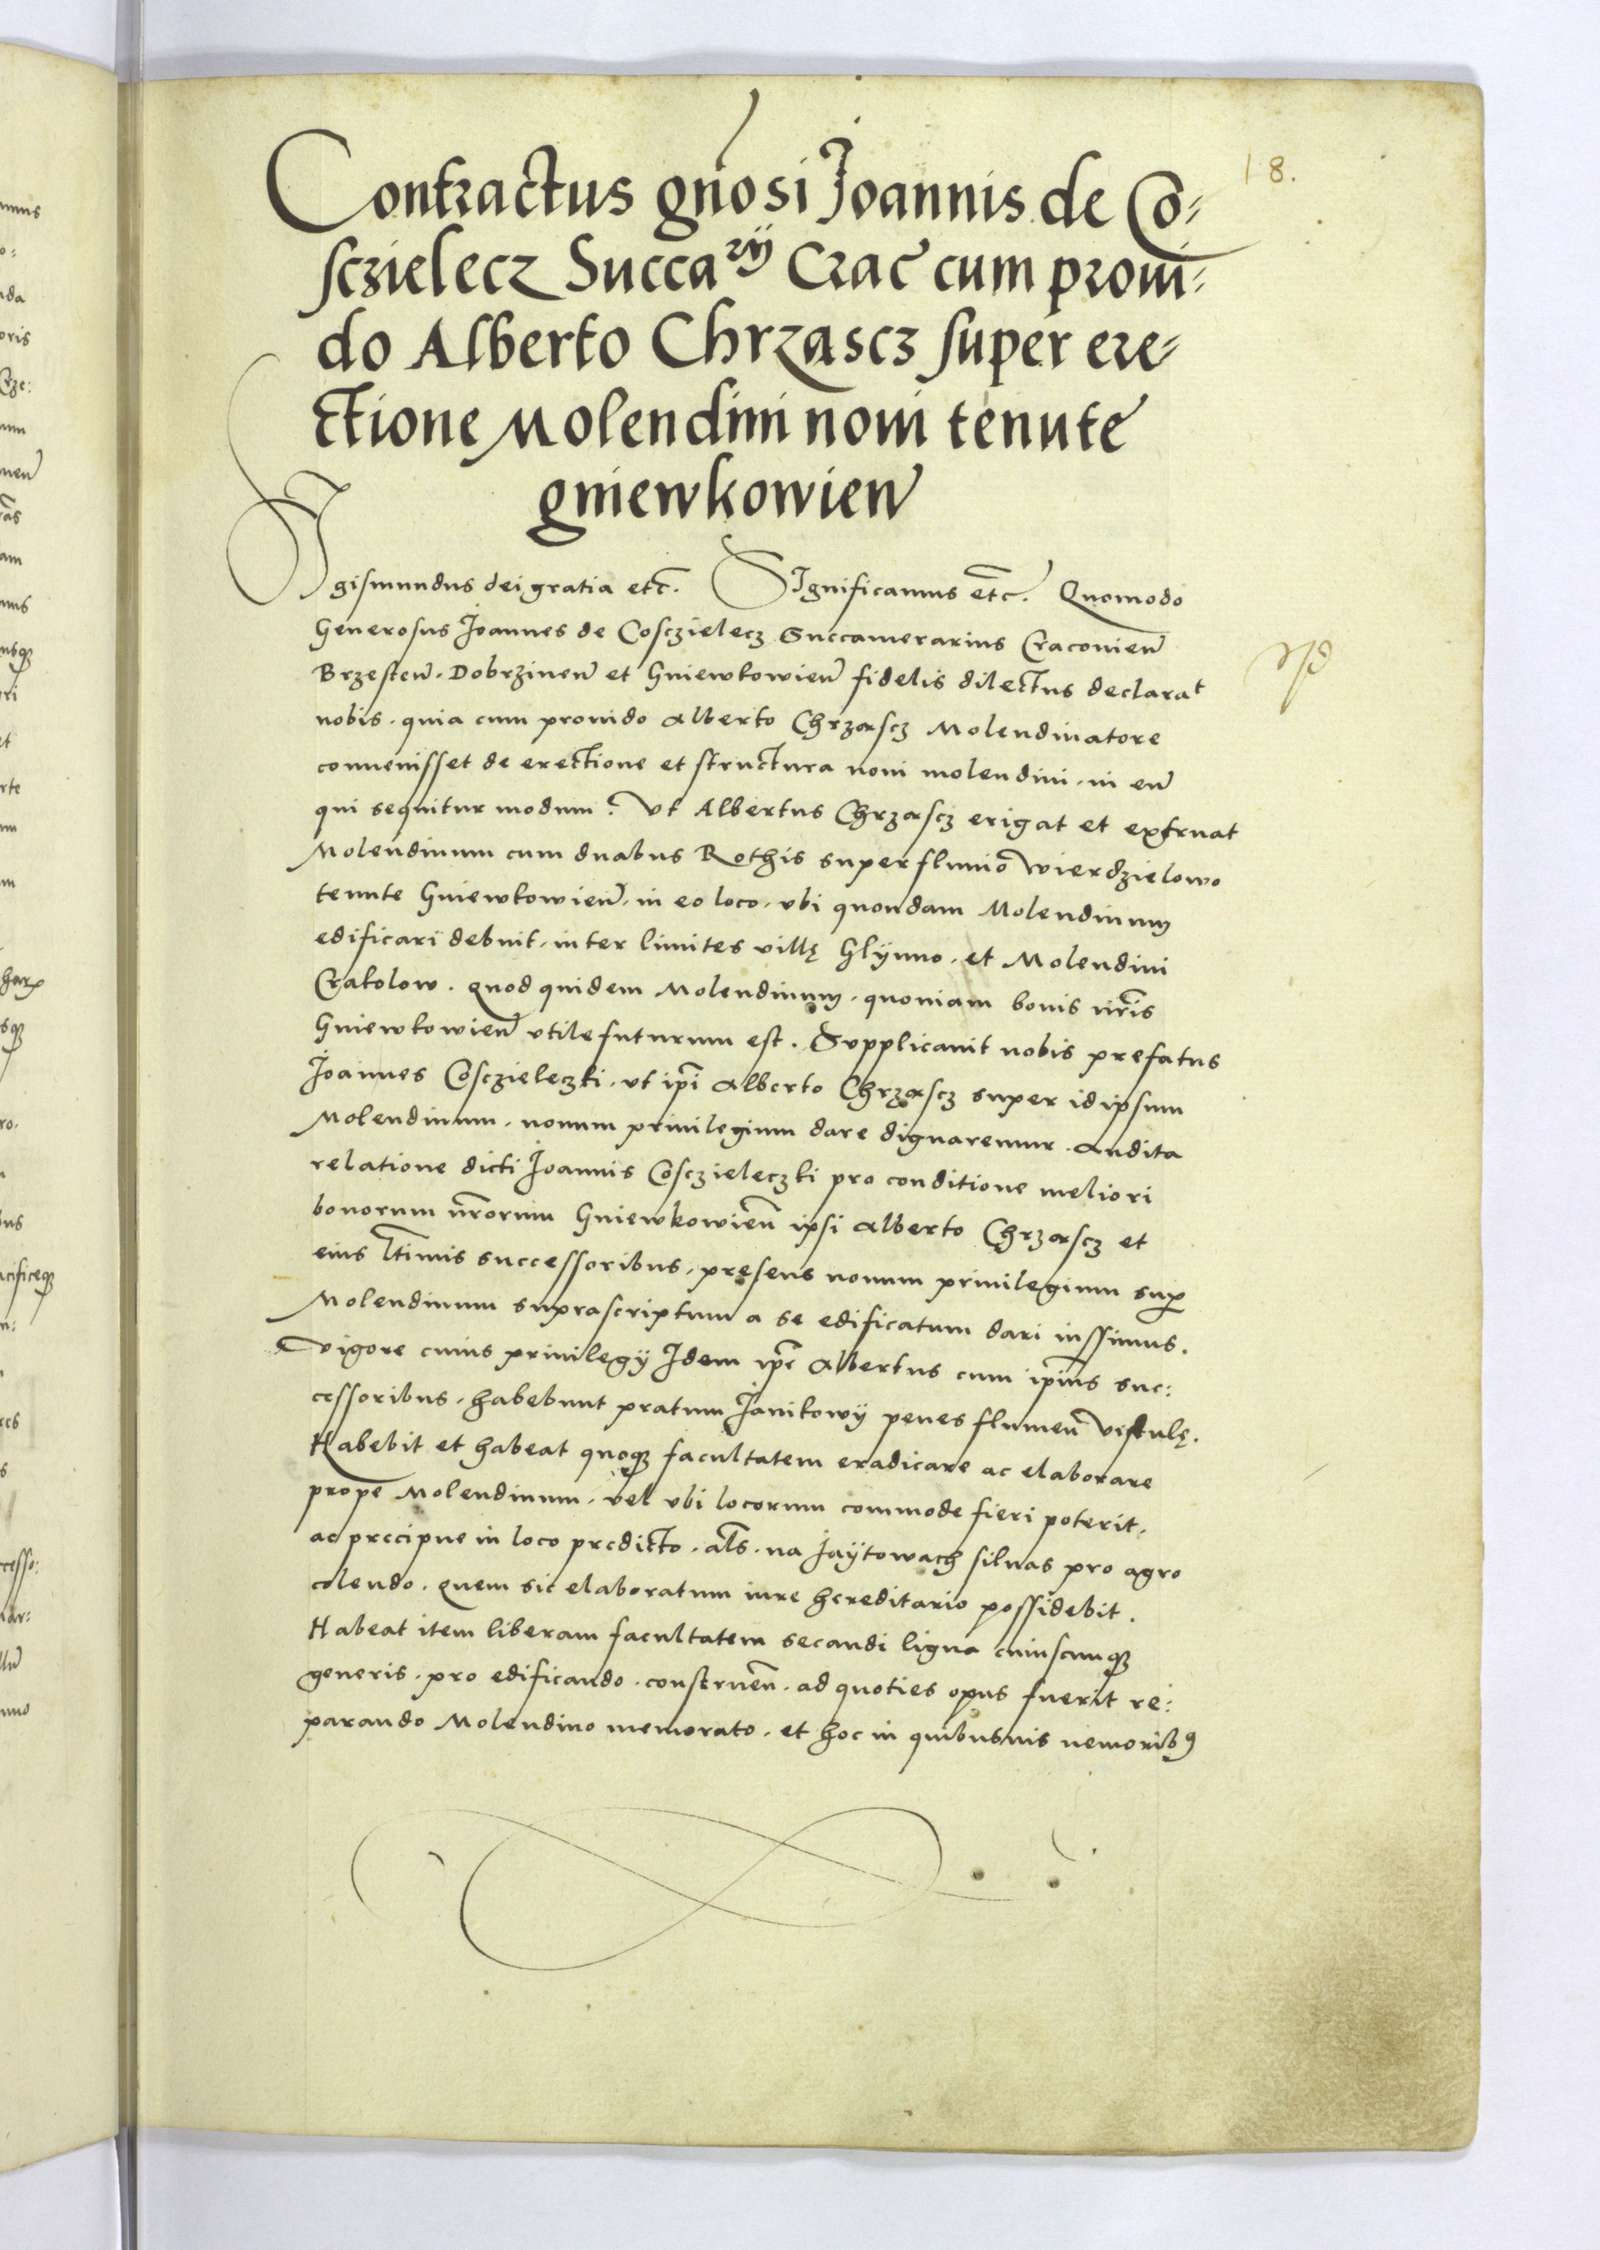 18.
Contractus gnosi Joannis de Co-
sczielecz Succarÿ Crac cum proui-
do Alberto Chrzascz super ere-
ctione Molendini noui tenute
gniewkowien
Sigismundus dei gratia etc. Significamus etc. Quomodo
Generosus Joannes de Cosczielecz Succamerarius Craconien
Brzesten. Dobrzinen et Gniewkowien fidelis dilectus declarat
nobis. quia cum prouido Alberto Chrzascz Molendinatore
conuenisset de erectione et structura noui molendini. in eu
qui sequitur modum. Vt Albertus Chrzascz erigat et exstruat
Molendinum cum duabus Rothis super fluuio Wierdzielowo
tenute Gniewkowien. in eo loco. vbi quondam Molendinum
edificari debuit. inter limites villę Glÿnno. et Molendini
Crakolow. quod quidem Molendinum. quoniam bonis nris
Gniewkowien vtile futurum est. Supplicauit nobis prefatus
Joannes Cosczieleczki. vt ipi Alberto Chrzascz super id ipsum
Molendinum. nouum priuilegium dare dignaremur. Audita
relatione dicti Joannis Cosczieleczki pro conditione meliori
bonorum nrorum Gniewkowien ipsi Alberto Chrzascz et
eius ltimis successoribus. presens nouum priuilegium sup
Molendinum suprascriptum a se edificatum dari iussimus.
Vigore cuius priuilegÿ Idem ipe Albertus cum ipius suc:
cessoribus. habebunt pratum Janikowÿ penes flumen Vistulę.
Habebit et habeat quoque facultatem eradicare ac elaborare
prope Molendinum. vel vbi locorum commode fieri poterit.
ac precipue in loco predicto. als. na Jaÿtowach siluas pro agro
colendo. quem sic elaboratum iure hereditario possidebit.
Habeat item liberam facultatem secandi ligna cuiuscunque
generis. pro edificando. construen. ad quoties opus fuerit re:
parando Molendino memorato. et hoc in quibusuis nemoribus